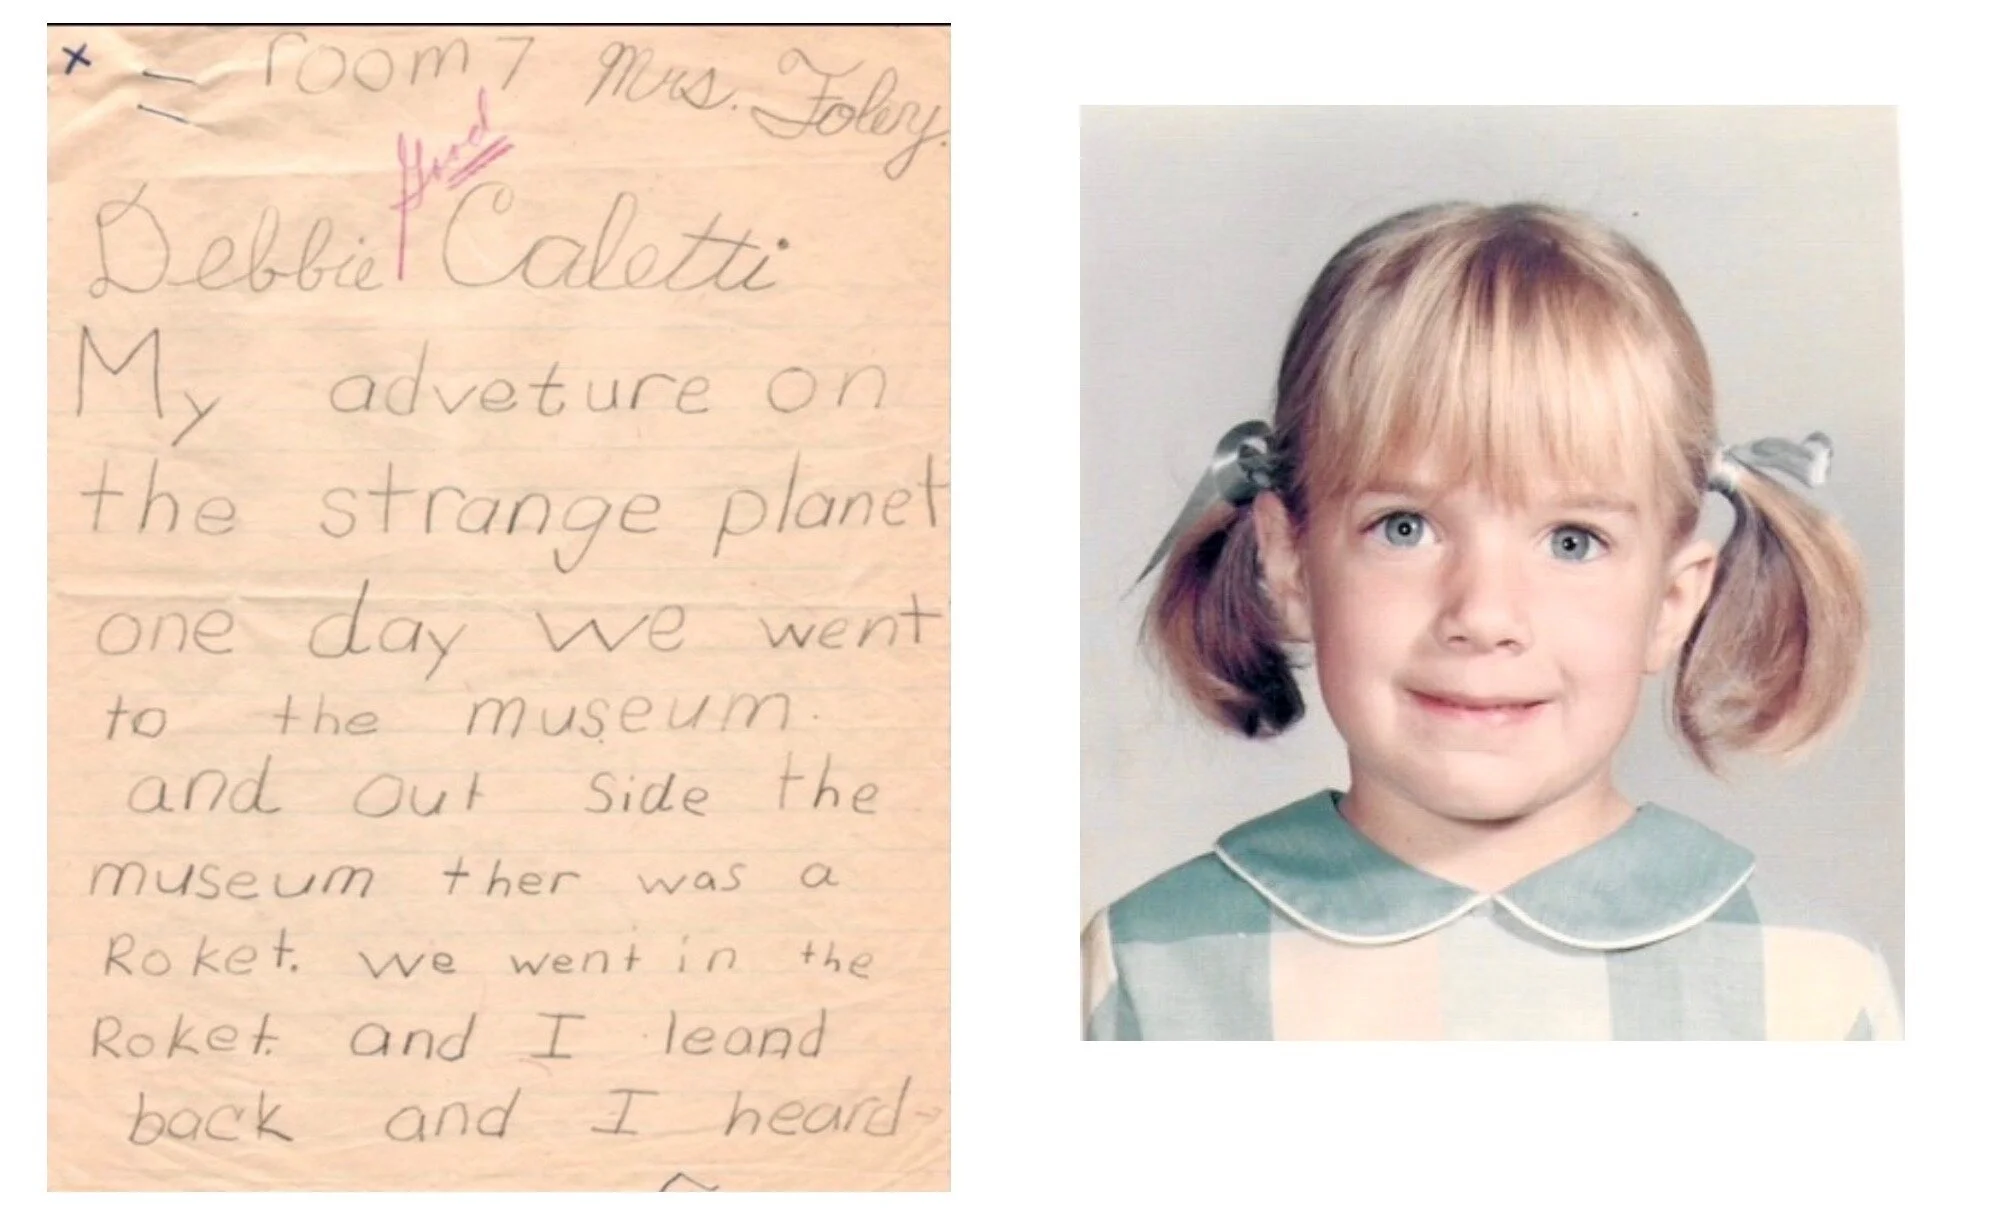 x room 7 Mrs. Foley.
Good
Debbie Caletti
My adveture on
the strange planet
one day we went
to the museum.
and out side the
museum ther was a
Roket. we went in the
Roket. and I leand
back and I heard